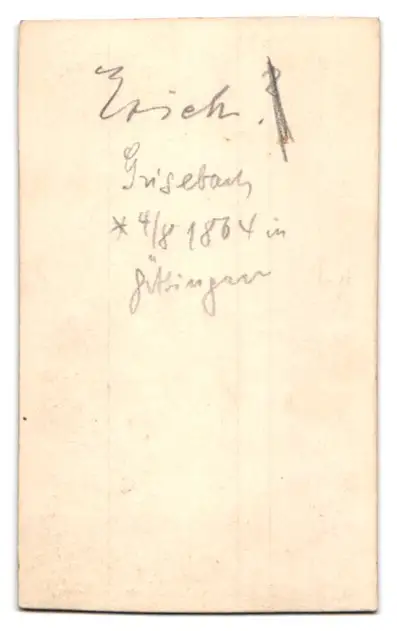 Erich.
Grisebach
* 4/8 1864 in
Göttingen